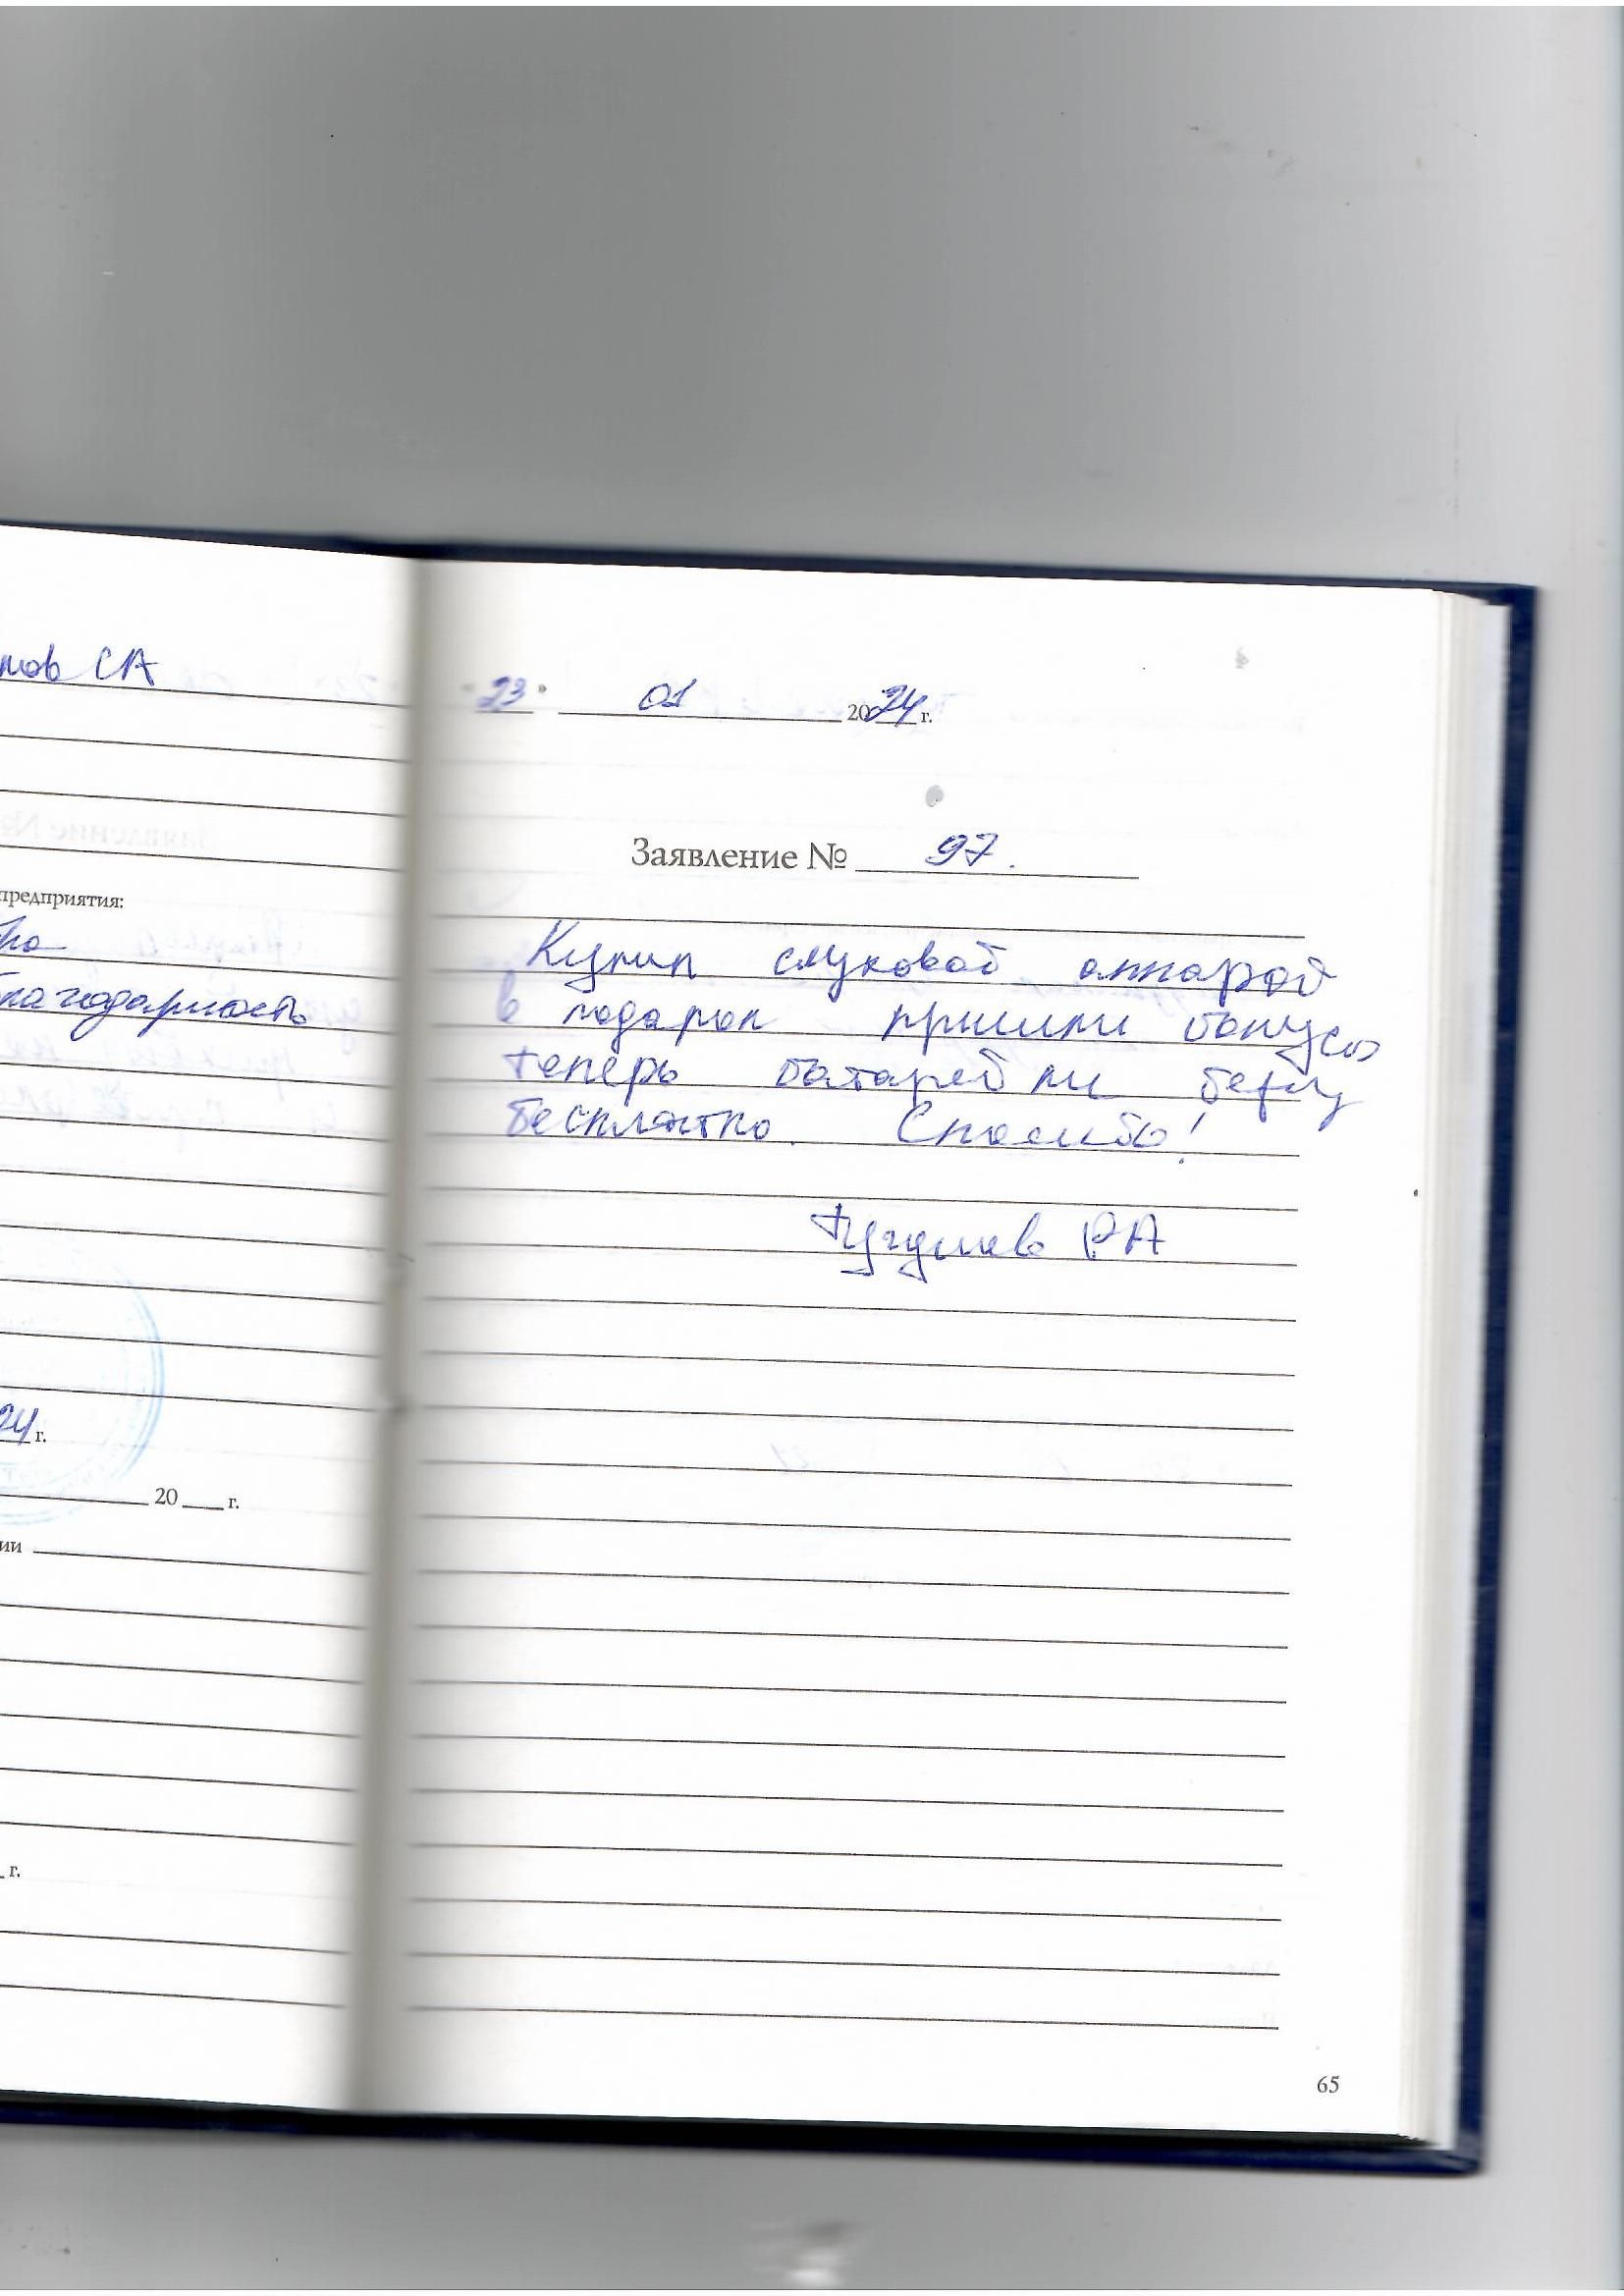 мов СА
предприятия:
благодарность
24 г.
20 г.
ии
г.
"23" 01 2024 г.
Заявление № 97.
Купил слуховой аппарат
в подарок пришли бонусы
теперь батарейки беру
бесплатно. Спасибо!
РА
65